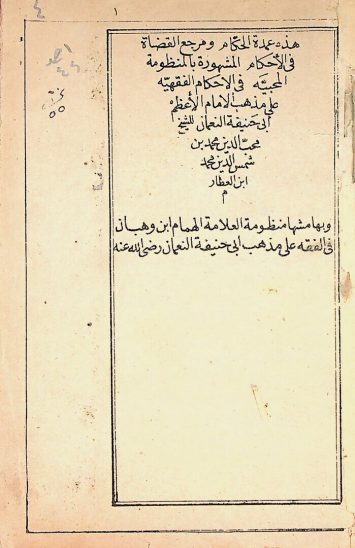 ١
هذه عمدة الحكام ومرجع القضاة
فى الأحكام المشهورة بالمنظومة
المحبيّه فى الاحكام الفقهيّه
على مذهب الامام الأعظم
ابى حنيفة النعمان للشيخ
محبّ الدين محمد بن
شمس الدين محمد
ابن العطار
م
وبهامشها منظومة العلامة الهمام ابن وهبان
فى الفقه على مذهب ابى حنيفة النعمان رضى الله عنه